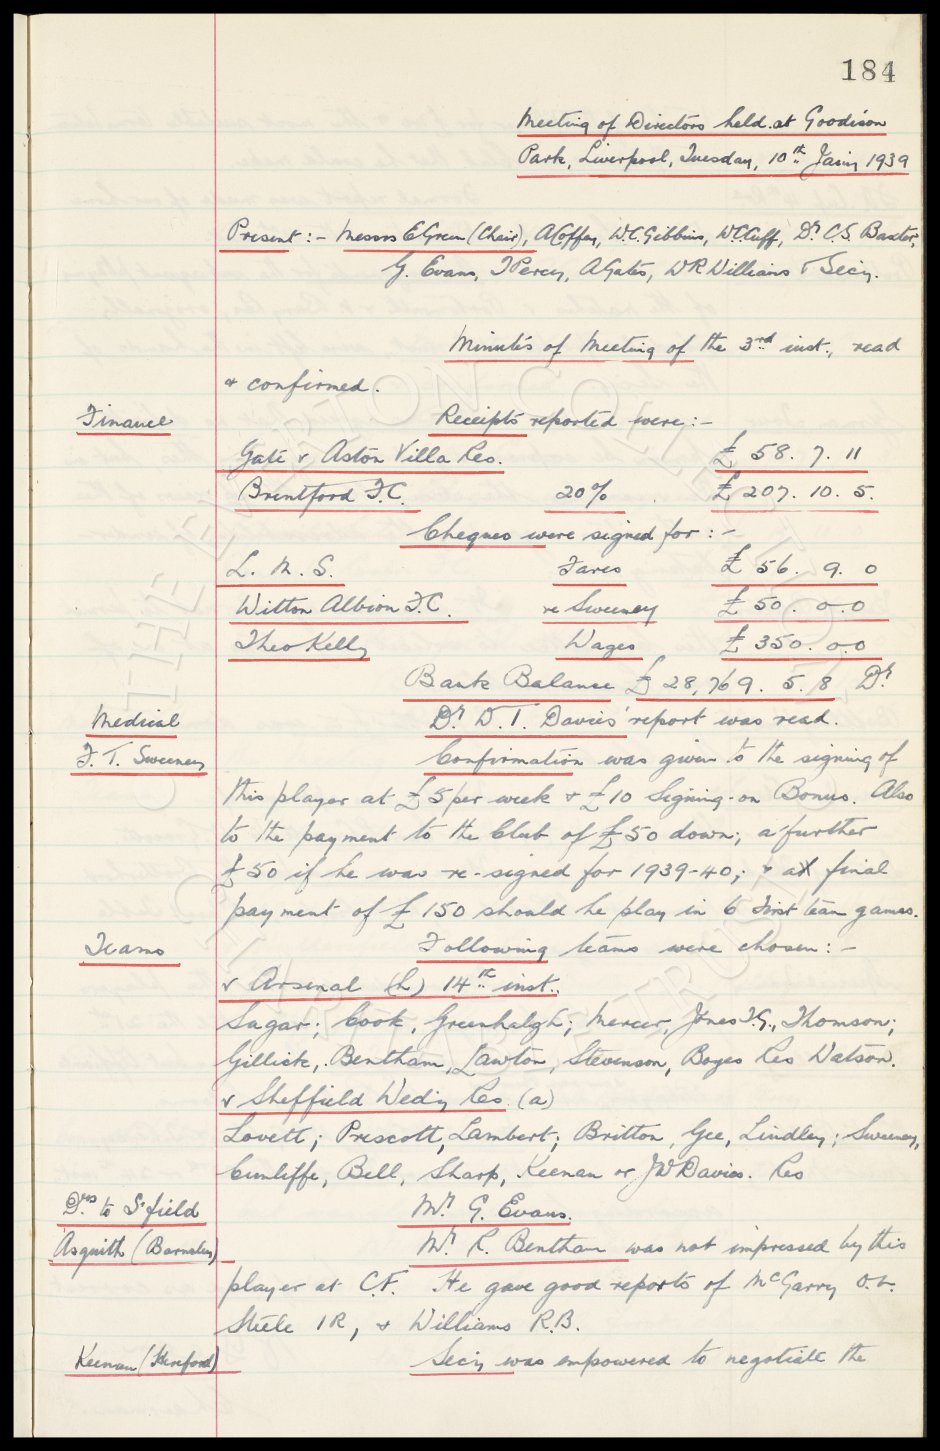 184
Meeting of Directors held at Goodison
Park, Liverpool, Tuesday, 10th Jany 1939
Present :- Messrs E Green (Chair), A Coffey, W.C. Gibbins, W.C. Cuff, Dr C.S. Baxter,
G. Evans, T Percy, A Gates, W R Williams & Secy.
Minutes of Meeting of the 3rd inst., read
& confirmed.
Finance Receipts reported were :-
Gate v Aston Villa Res. £ 58. 7. 11
Brentford F.C. 20% £ 207. 10. 5.
Cheques were signed for :-
L. M. S. Fares £ 56. 9. 0
Witton Albion F.C. re Sweeney £ 50. 0. 0
Theo Kelly Wages £ 350. 0. 0
Bank Balance £ 28,769. 5. 8 Dr
Medical Dr D. T. Davies' report was read.
F. T. Sweeney Confirmation was given to the signing of
this player at £5 per week & £10 Signing-on Bonus. Also
to the payment to the Club of £50 down; a further
£50 if he was re-signed for 1939-40; & a final
payment of £150 should he play in 6 First team games.
Teams Following teams were chosen :-
v Arsenal (h) 14th inst.
Sagar; Cook, Greenhalgh; Mercer, Jones T.G., Thomson;
Gillick, Bentham, Lawton, Stevenson, Boyes Res Watson.
v Sheffield Wedy Res. (a)
Lovett; Prescott, Lambert; Britton, Gee, Lindley; Sweeney,
Cunliffe, Bell, Sharp, Keenan or JW R Davies. Res
Drs to S'field Mr. G. Evans.
Asquith (Barnsley) Mr R. Bentham was not impressed by this
player at C.F. He gave good reports of McGarry O.L.
Steele IR, & Williams R.B.
Keenan (Hereford) Secy was empowered to negotiate the
THE EVERTON COLLECTION CHARITABLE TRUST